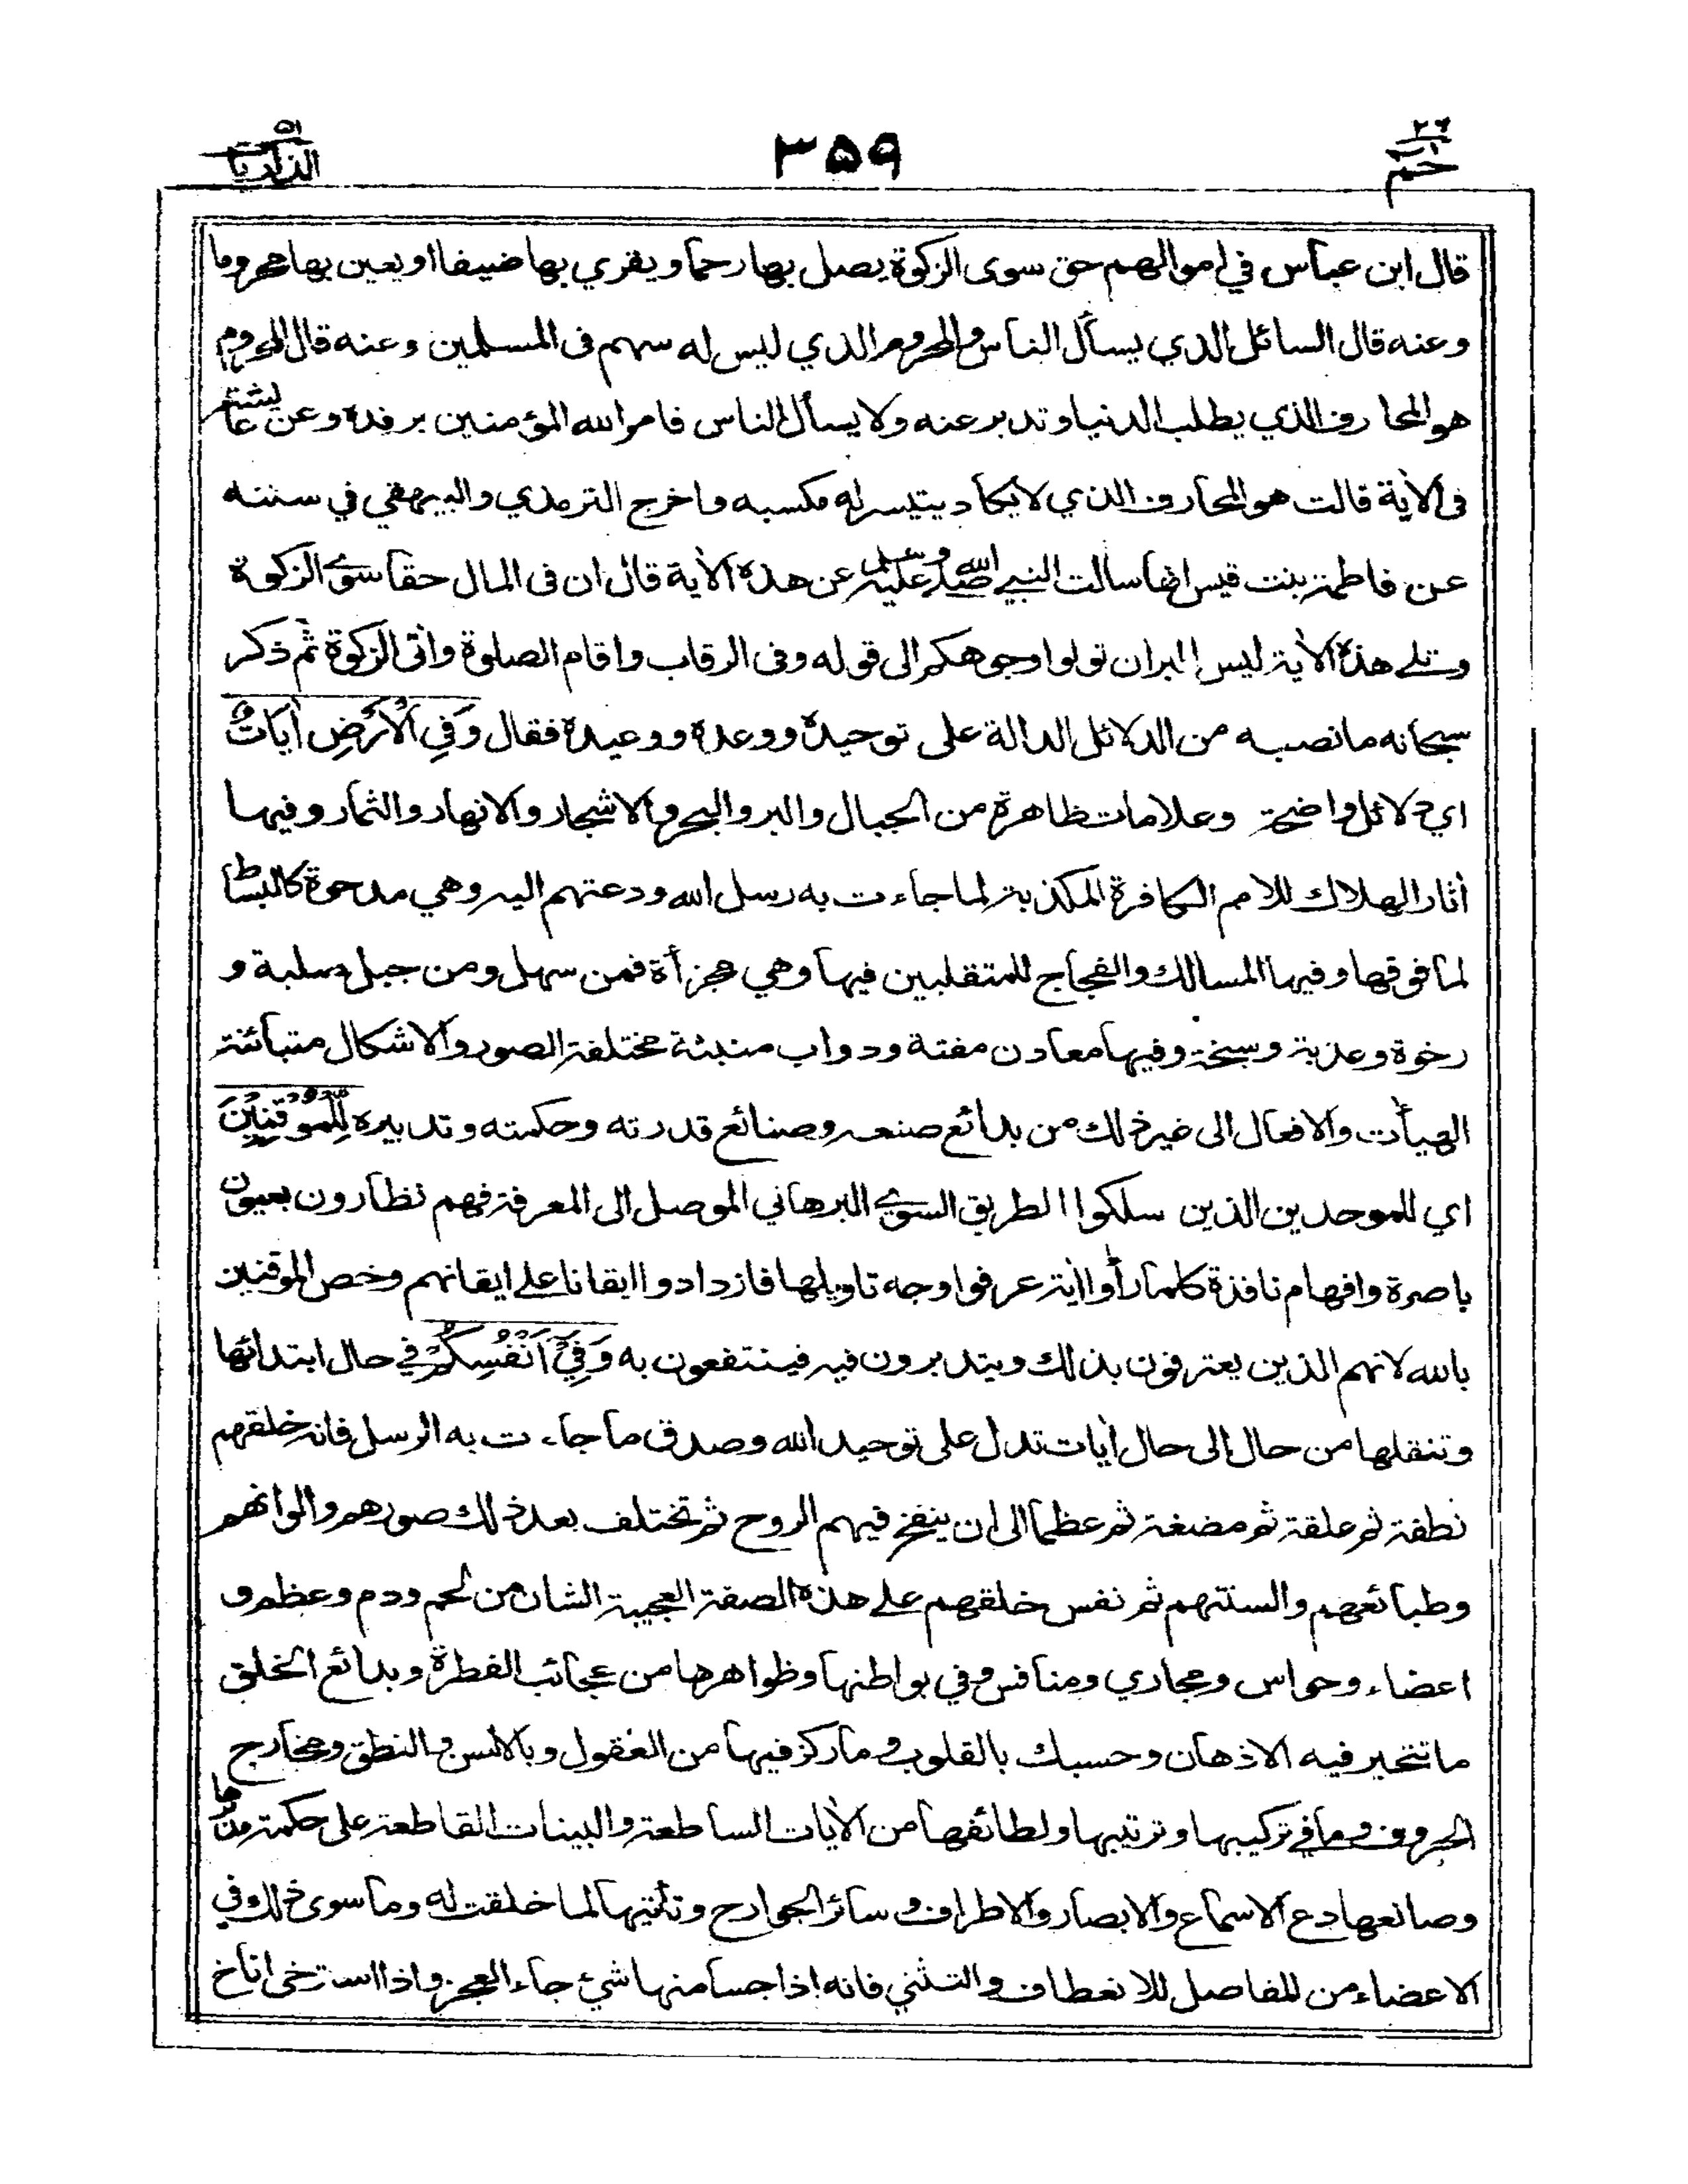 حم ٢٦
٣٥٩
الذاريات ٥١
قال ابن عباس في اموالهم حق سوى الزكوة يصل بها رحما ويقري بها ضيفا او يعين بها محروما
وعنه قال السائل الذي يسأل الناس والمحروم الذي ليس له سهم فى المسلمين وعنه قال المحروم
هو المحارف الذي يطلب الدنيا وتدبر عنه ولا يسأل الناس فامر الله المؤمنين برفده وعن عائشة
فى الأية قالت هو المحارف الذي لا يكاد يتيسر له مكسبه واخرج الترمذي والبيهقي في سننه
عن فاطمة بنت قيس انها سالت النبي صلى الله عليه وسلم عن هذه الأية قال ان فى المال حقا سوى الزكوة
وتلے هذه الأية ليس البر ان تولوا وجوهكم الى قوله وفى الرقاب واقام الصلوة وأتى الزكوة ثم ذكر
سبحانه ما نصبه من الدلائل الدالة على توحيده ووعده ووعيده فقال وَفِي الْأَرْضِ أَيَاتٌ
اي دلائل واضحة وعلامات ظاهرة من الجبال والبر والبحر والاشجار والانهار والثمار وفيها
أثار الهلاك للامم الكافرة المكذبة لما جاءت به رسل الله ودعتهم اليه وهي مدحوة كالبساط
لما فوقها وفيها المسالك والفجاج للمتقلبين فيها وهي مجزأة فمن سهل ومن جبل وصلبة و
رخوة وعذبة وسبخة وفيها معادن مفتة ودواب منبثة مختلفة الصور والاشكال متبائنة
الهيأت والافعال الى غير ذلك من بدائع صنعه وصنائع قدرته وحكمته وتدبيره لِّلْمُوْقِنِيْنَ
اي للموحدين الذين سلكوا الطريق السوي البرهاني الموصل الى المعرفة فهم نظارون بعيون
باصرة وافهام نافذة كلما رأوا أية عرفوا وجه تاويلها فازدادوا ايقانا على ايقانهم وخص الموقنين
بالله لانهم الذين يعترفون بذلك ويتدبرون فيه فينتفعون به وَفِيْ أَنْفُسِكُمْ في حال ابتدائها
وتنقلها من حال الى حال أيات تدل على توحيد الله وصدق ما جاءت به الرسل فانه خلقهم
نطفة ثم علقة ثم مضغة ثم عظما الى ان ينفخ فيهم الروح ثم تختلف بعد ذلك صورهم والوانهم
وطبائعهم والسنتهم ثم نفس خلقهم على هذه الصفة العجيبة الشان من لحم ودم وعظم و
اعضاء وحواس ومجاري ومنافس وفي بواطنها وظواهرها من عجائب الفطرة وبدائع الخلق
ما تتحير فيه الاذهان وحسبك بالقلوب وما ركز فيها من العقول وبالالسن والنطق ومخارج
الحروف وما في تركيبها وترتيبها ولطائفها من الأيات الساطعة والبينات القاطعة على حكمة مدبرها
وصانعها دع الاسماع والابصار والاطراف وسائر الجوارح وتأتيها لما خلقت له وما سوى ذلك وفي
الاعضاء من المفاصل للانعطاف والتثني فانه اذا جسا منها شيء جاء العجز واذا استرخى اناخ